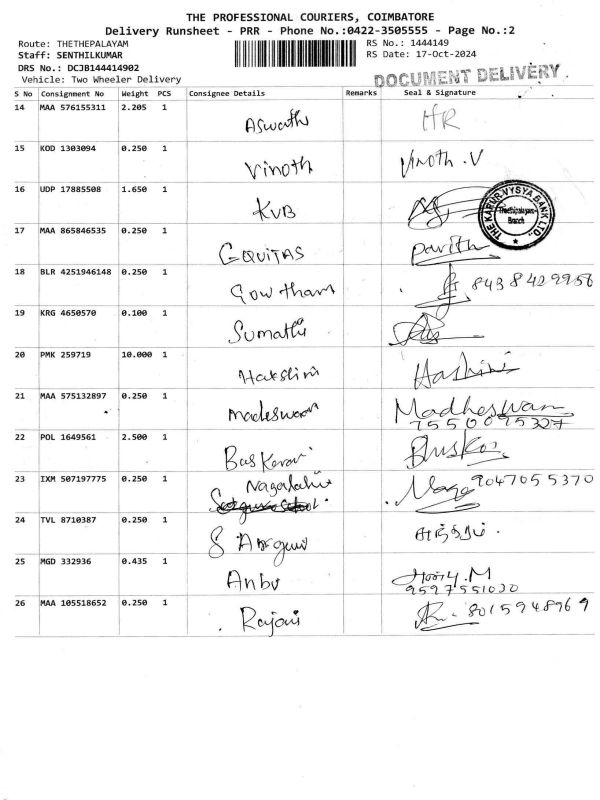 THE PROFESSIONAL COURIERS, COIMBATORE
Delivery Runsheet - PRR - Phone No.:0422-3505555 - Page No.:2
Route: THETHEPALAYAM RS No.: 1444149
Staff: SENTHILKUMAR RS Date: 17-Oct-2024
DRS No.: DCJB144414902
Vehicle: Two Wheeler Delivery
DOCUMENT DELIVERY
S No Consignment No Weight PCS Consignee Details Remarks Seal & Signature
14 MAA 576155311 2.205 1 Aswathi HR
15 KOD 1303094 0.250 1 Vinoth Vinoth.V
16 UDP 17885508 1.650 1 KVB
THE KARUR VYSYA BANK LTD.
Thethipalayam
Branch
17 MAA 865846535 0.250 1 EQUITAS Pavith
18 BLR 4251946148 0.250 1 Gowtham 8438429956
19 KRG 4650570 0.100 1 Sumathi
20 PMK 259719 10.000 1 Hakslini Hashini
21 MAA 575132897 0.250 1 madeswaran Madheswaran
7550095327
22 POL 1649561 2.500 1 Baskaran
23 IXM 507197775 0.250 1 Nagalakshmi Naga 9047055370
24 TVL 8710387 0.250 1
25 MGD 332936 0.435 1 Anbu
9597551030
26 MAA 105518652 0.250 1 Rajani 8015948969